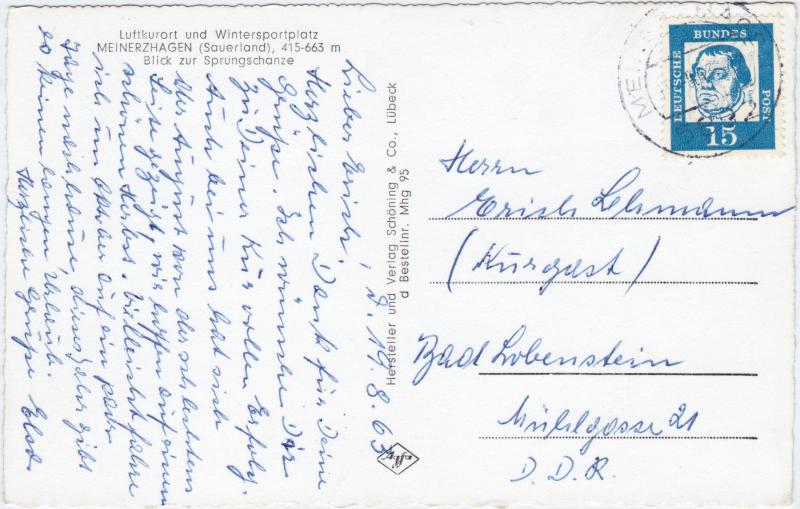 Luftkurort und Wintersportplatz
MEINERZHAGEN (Sauerland), 415-663 m
Blick zur Sprungschanze
d. 19.8.63
Lieber Erich!
Herzlichen Dank für Deine
Grüße. Ich wünsche Dir
zu Deiner Kur vollen Erfolg.
Auch bei uns hat sich
der August von der schlechten
Seite gezeigt, wir hoffen auf einen
schönen Herbst. Vielleicht fahre
ich im Oktober auf ein paar
Tage nach hause, dieses Jahr gibt
es keinen langen Urlaub.
Herzliche Grüße
Hersteller und Verlag Schöning & Co., Lübeck
d Bestellnr. Mhg 95
DEUTSCHE BUNDESPOST
15
Herrn
Erich Lehmann
(Kurgast)
Bad Lobenstein
Mühlgasse 21
D.D.R.